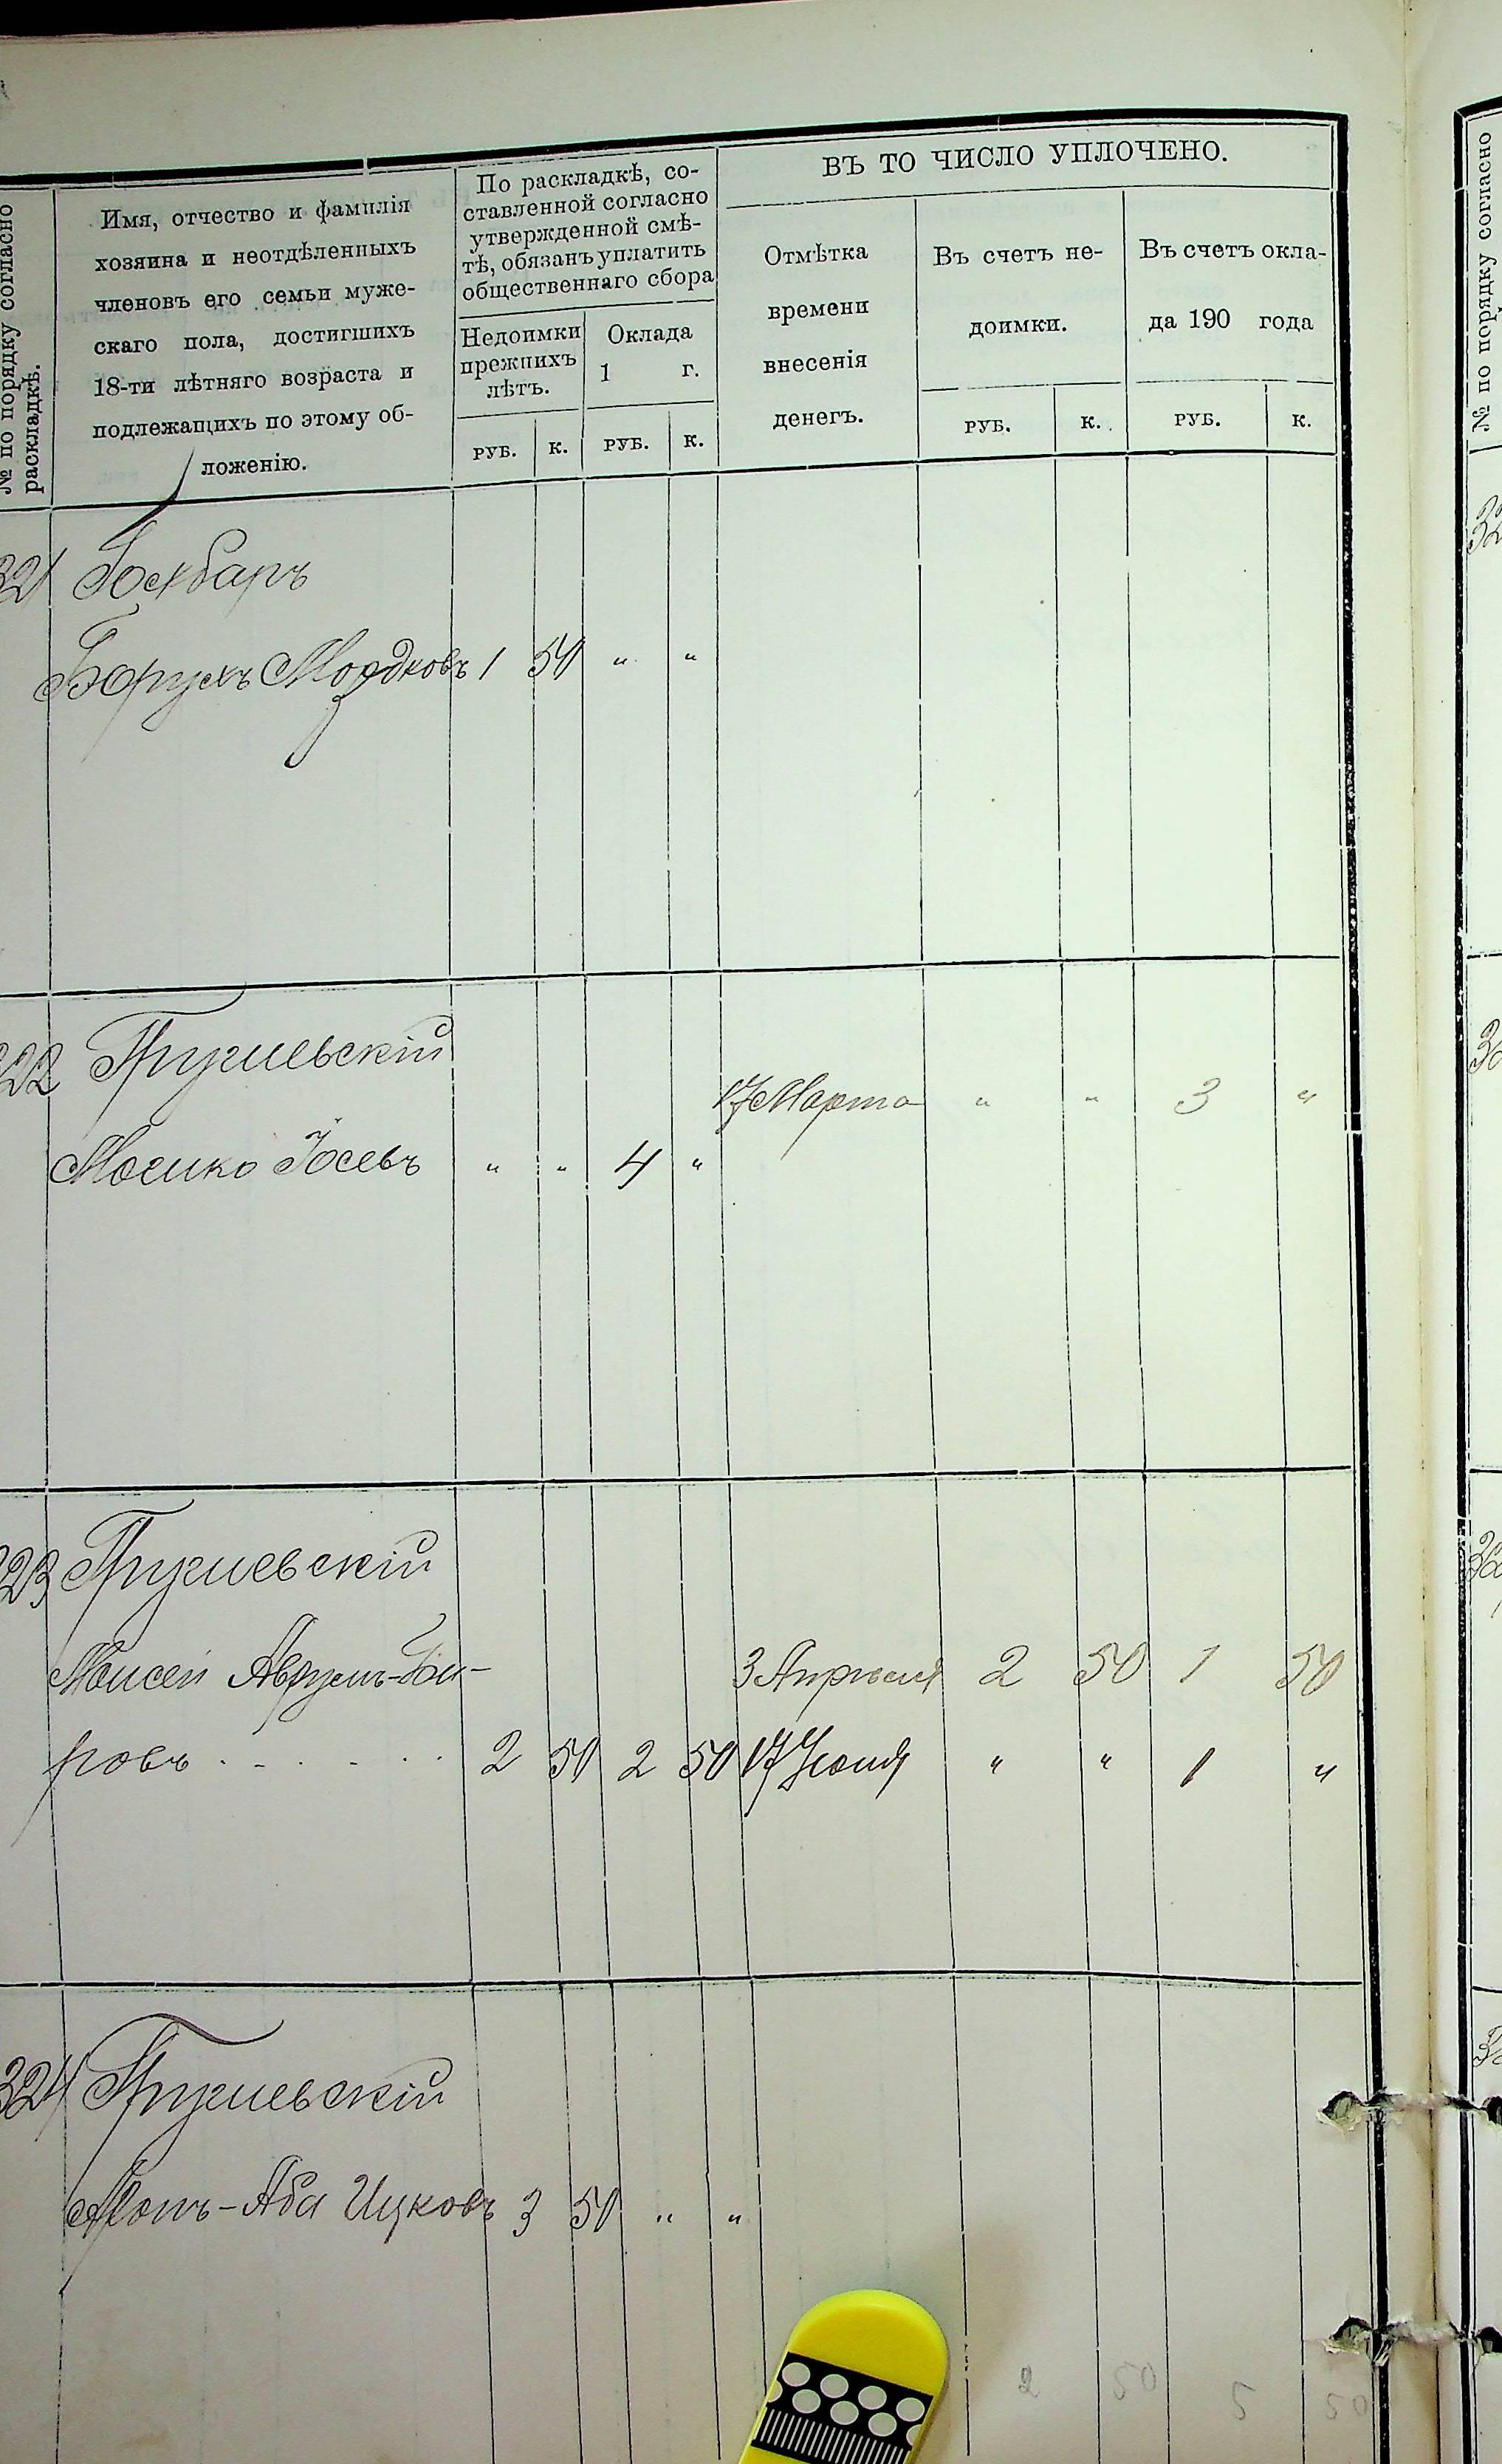 № по порядку согласно
раскладкѣ.
Имя, отчество и фамилія
хозяина и неотдѣленныхъ
членовъ его семьи муже-
скаго пола, достигшихъ
18-ти лѣтняго возраста и
подлежащихъ по этому об-
ложенію.
По раскладкѣ, со-
ставленной согласно
утвержденной смѣ-
тѣ, обязанъ уплатить
общественнаго сбора
Недоимки
прежнихъ
лѣтъ.
РУБ. К.
Оклада
1 г.
РУБ. К.
ВЪ ТО ЧИСЛО УПЛОЧЕНО.
Отмѣтка
времени
внесенія
денегъ.
Въ счетъ не-
доимки.
РУБ. К.
Въ счетъ окла-
да 190 года
РУБ. К.
321
Борухъ Мордковъ 1 50 " "
322
17 Марта " " 3 "
Мошко Іосевъ " " 4 "
323
Моисей Аврумъ-
3 Апрѣля 2 50 1 50
ровъ . - . - . . 2 50 2 50 17 Іюня " " 1 "
324
-Аба Ицковъ 3 50 " "
2 50 5 50
№ по порядку согласно